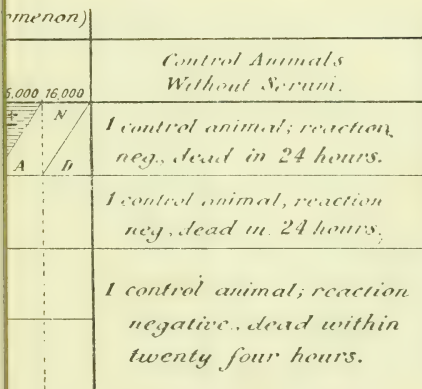 omenon)
Control Animals
Without Serum.
5,000 16,000
N
A D
1 control animal; reaction
neg., dead in 24 hours.
1 control animal, reaction
neg., dead in 24 hours.
1 control animal; reaction
negative., dead within
twenty four hours.